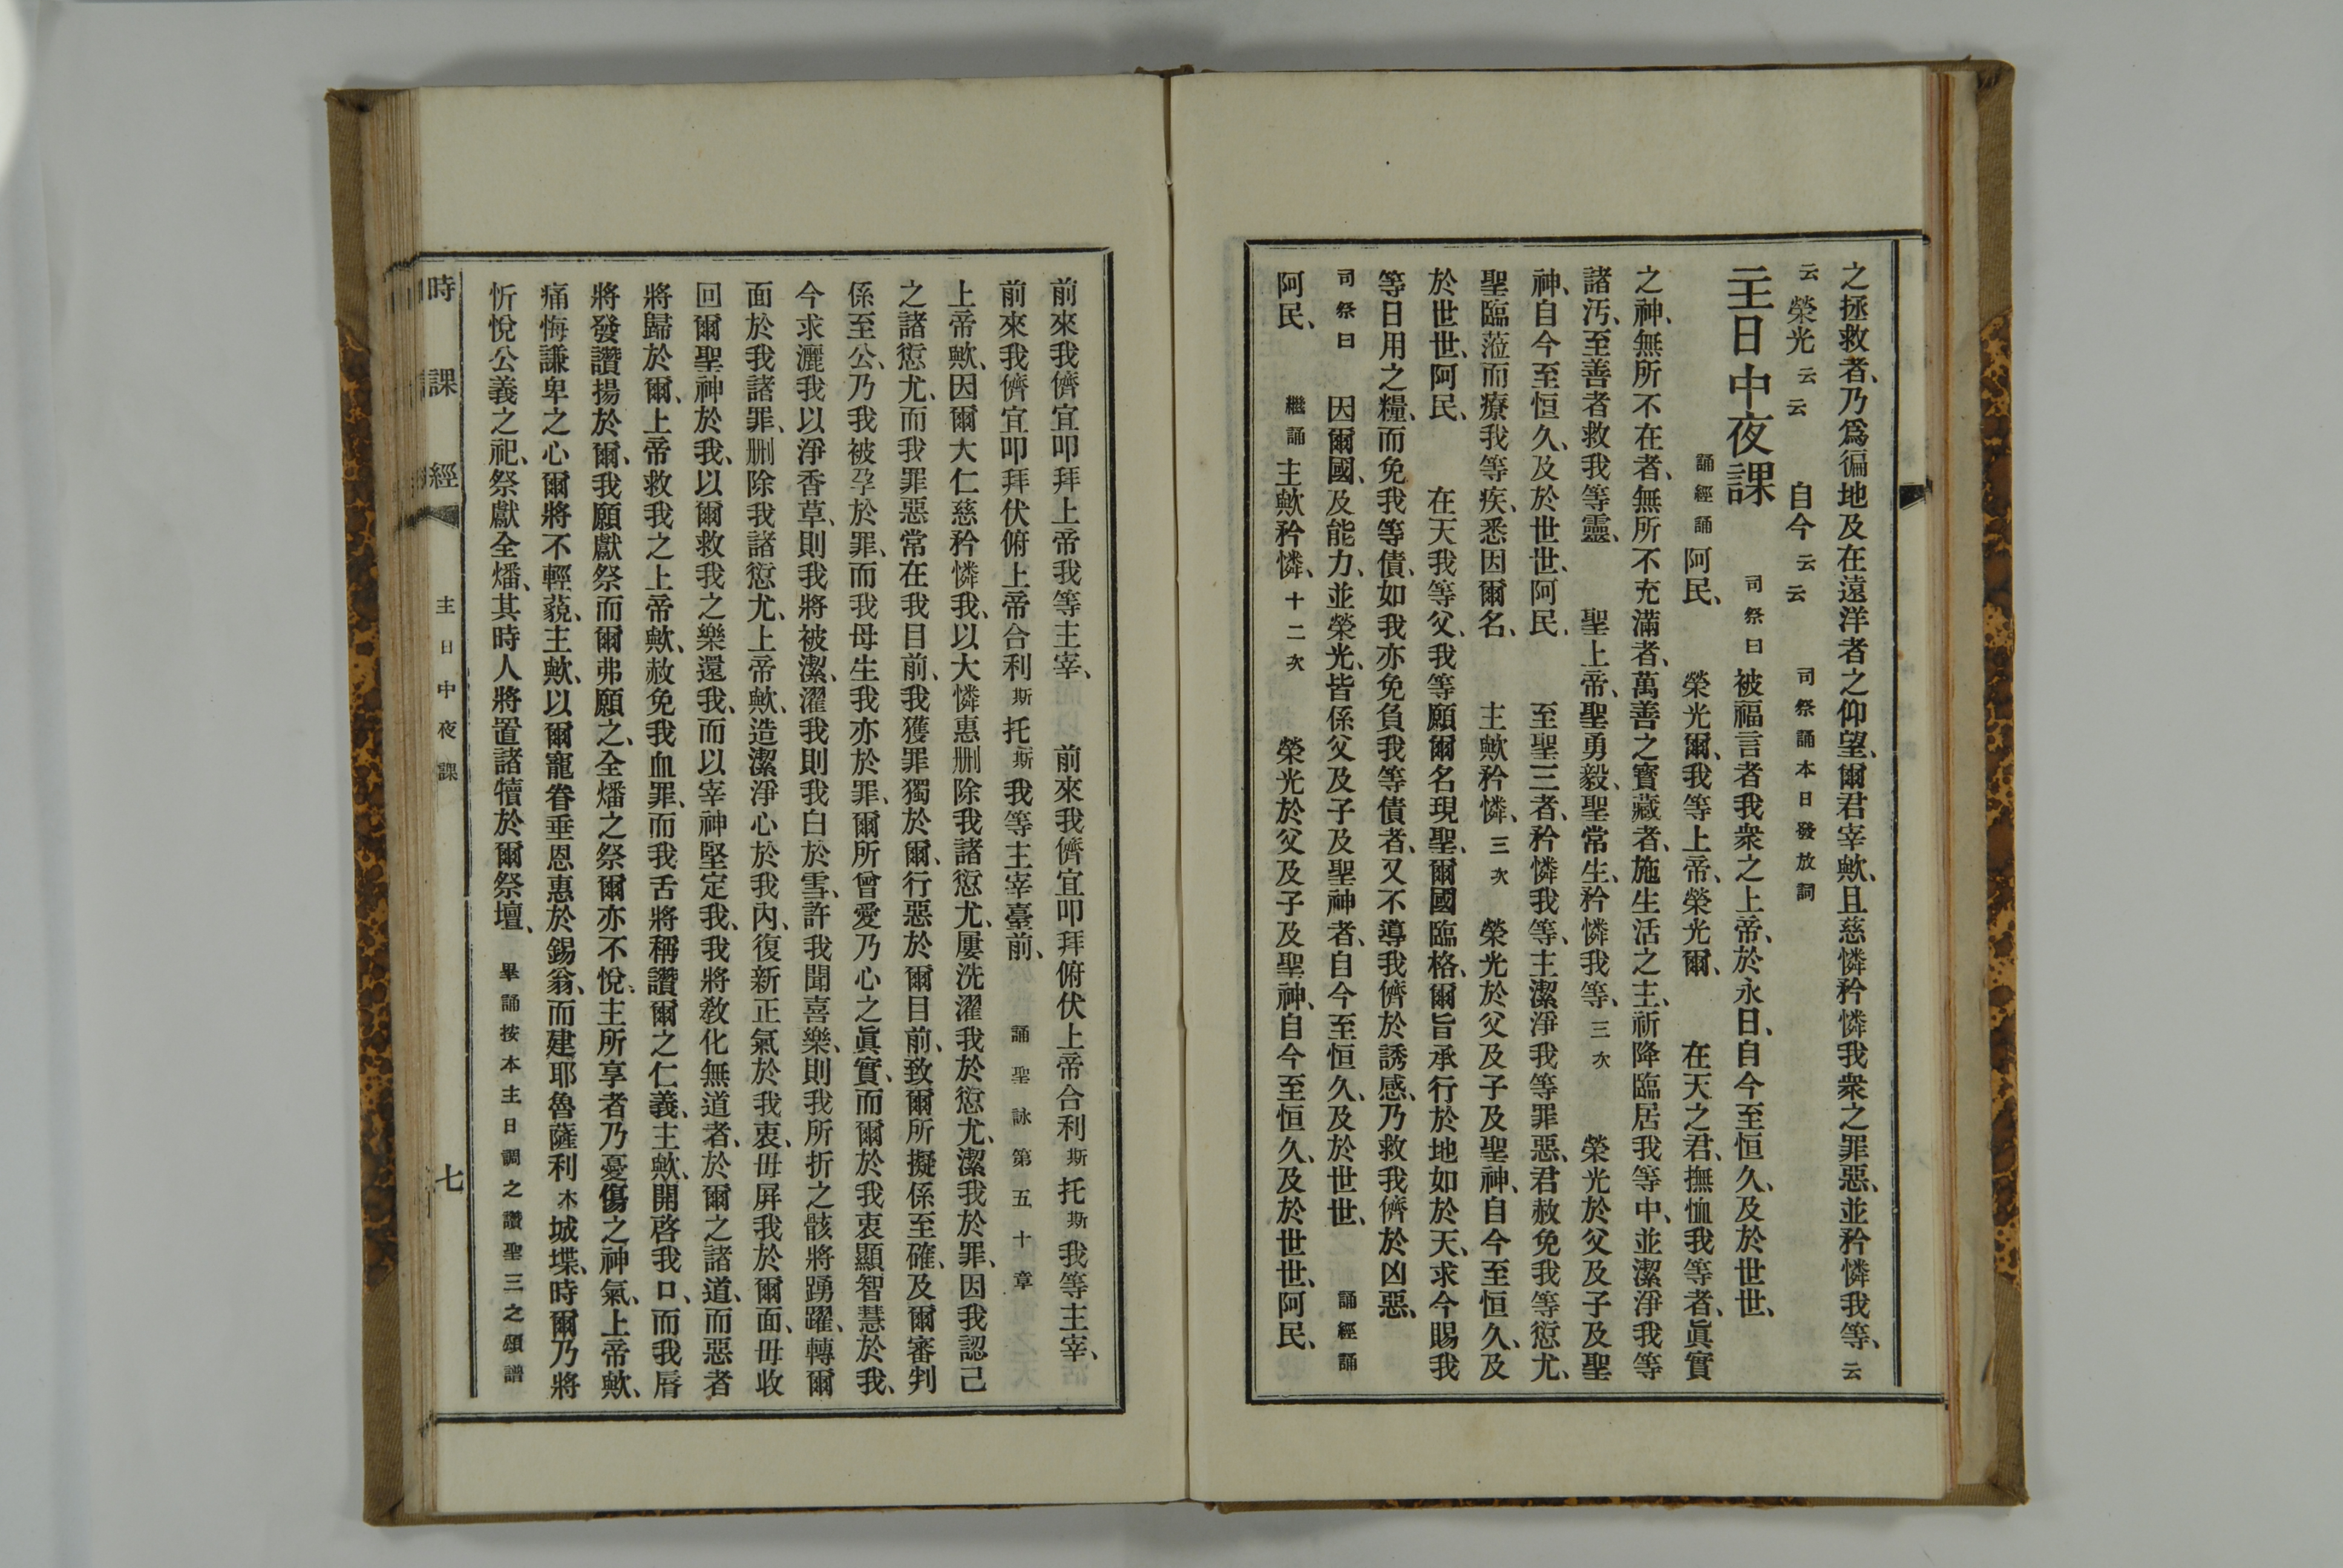 之拯救者、乃爲徧地及在遠洋者之仰望、爾君宰歟、且慈憐矜憐我衆之罪惡、並矜憐我等、云
云 榮光云云 自今云云 司祭誦本日發放詞
主日中夜課 司祭曰 被福言者我衆之上帝、於永日、自今至恒久、及於世世、
誦經誦 阿民、 榮光爾、我等上帝、榮光爾、 在天之君、撫恤我等者、眞實
之神、無所不在者、無所不充滿者、萬善之寶藏者、施生活之主、祈降臨居我等中、並潔淨我等
諸汚、至善者救我等靈、 聖上帝、聖勇毅、聖常生、矜憐我等、三次 榮光於父及子及聖
神、自今至恒久、及於世世、阿民、 至聖三者、矜憐我等、主潔淨我等罪惡、君赦免我等愆尤、
聖臨蒞而療我等疾、悉因爾名、 主歟矜憐、三次 榮光於父及子及聖神、自今至恒久、及
於世世、阿民、 在天我等父、我等願爾名現聖、爾國臨格、爾旨承行於地如於天、求今賜我
等日用之糧、而免我等債、如我亦免負我等債者、又不導我儕於誘感、乃救我儕於凶惡、
司祭曰 因爾國、及能力、並榮光、皆係父及子及聖神者、自今至恒久、及於世世、 誦經誦
阿民、 繼誦 主歟矜憐、十二次 榮光於父及子及聖神、自今至恒久、及於世世、阿民、
前來我儕宜叩拜上帝我等主宰、 前來我儕宜叩拜俯伏上帝合利斯托斯我等主宰、
前來我儕宜叩拜伏俯上帝合利斯托斯我等主宰臺前、 誦聖詠第五十章
上帝歟、因爾大仁慈矜憐我、以大憐惠删除我諸愆尤、屢洗濯我於愆尤、潔我於罪、因我認己
之諸愆尤、而我罪惡常在我目前、我獲罪獨於爾、行惡於爾目前、致爾所擬係至確、及爾審判
係至公、乃我被孕於罪、而我母生我亦於罪、爾所曾愛乃心之眞實、而爾於我衷顯智慧於我、
今求灑我以淨香草、則我將被潔、濯我則我白於雪、許我聞喜樂、則我所折之骸將踴躍、轉爾
面於我諸罪、删除我諸愆尤、上帝歟、造潔淨心於我內、復新正氣於我衷、毋屏我於爾面、毋收
回爾聖神於我、以爾救我之樂還我、而以宰神堅定我、我將敎化無道者、於爾之諸道、而惡者
將歸於爾、上帝救我之上帝歟、赦免我血罪、而我舌將稱讚爾之仁義、主歟、開啓我口、而我脣
將發讚揚於爾、我願獻祭而爾弗願之、全燔之祭爾亦不悅、主所享者乃憂傷之神氣、上帝歟、
痛悔謙卑之心爾將不輕藐、主歟、以爾寵眷垂恩惠於錫翁、而建耶魯薩利木城堞、時爾乃將
忻悅公義之祀、祭獻全燔、其時人將置諸犢於爾祭壇、 畢誦按本主日調之讚聖三之頌譜
時課經 主日中夜課 七